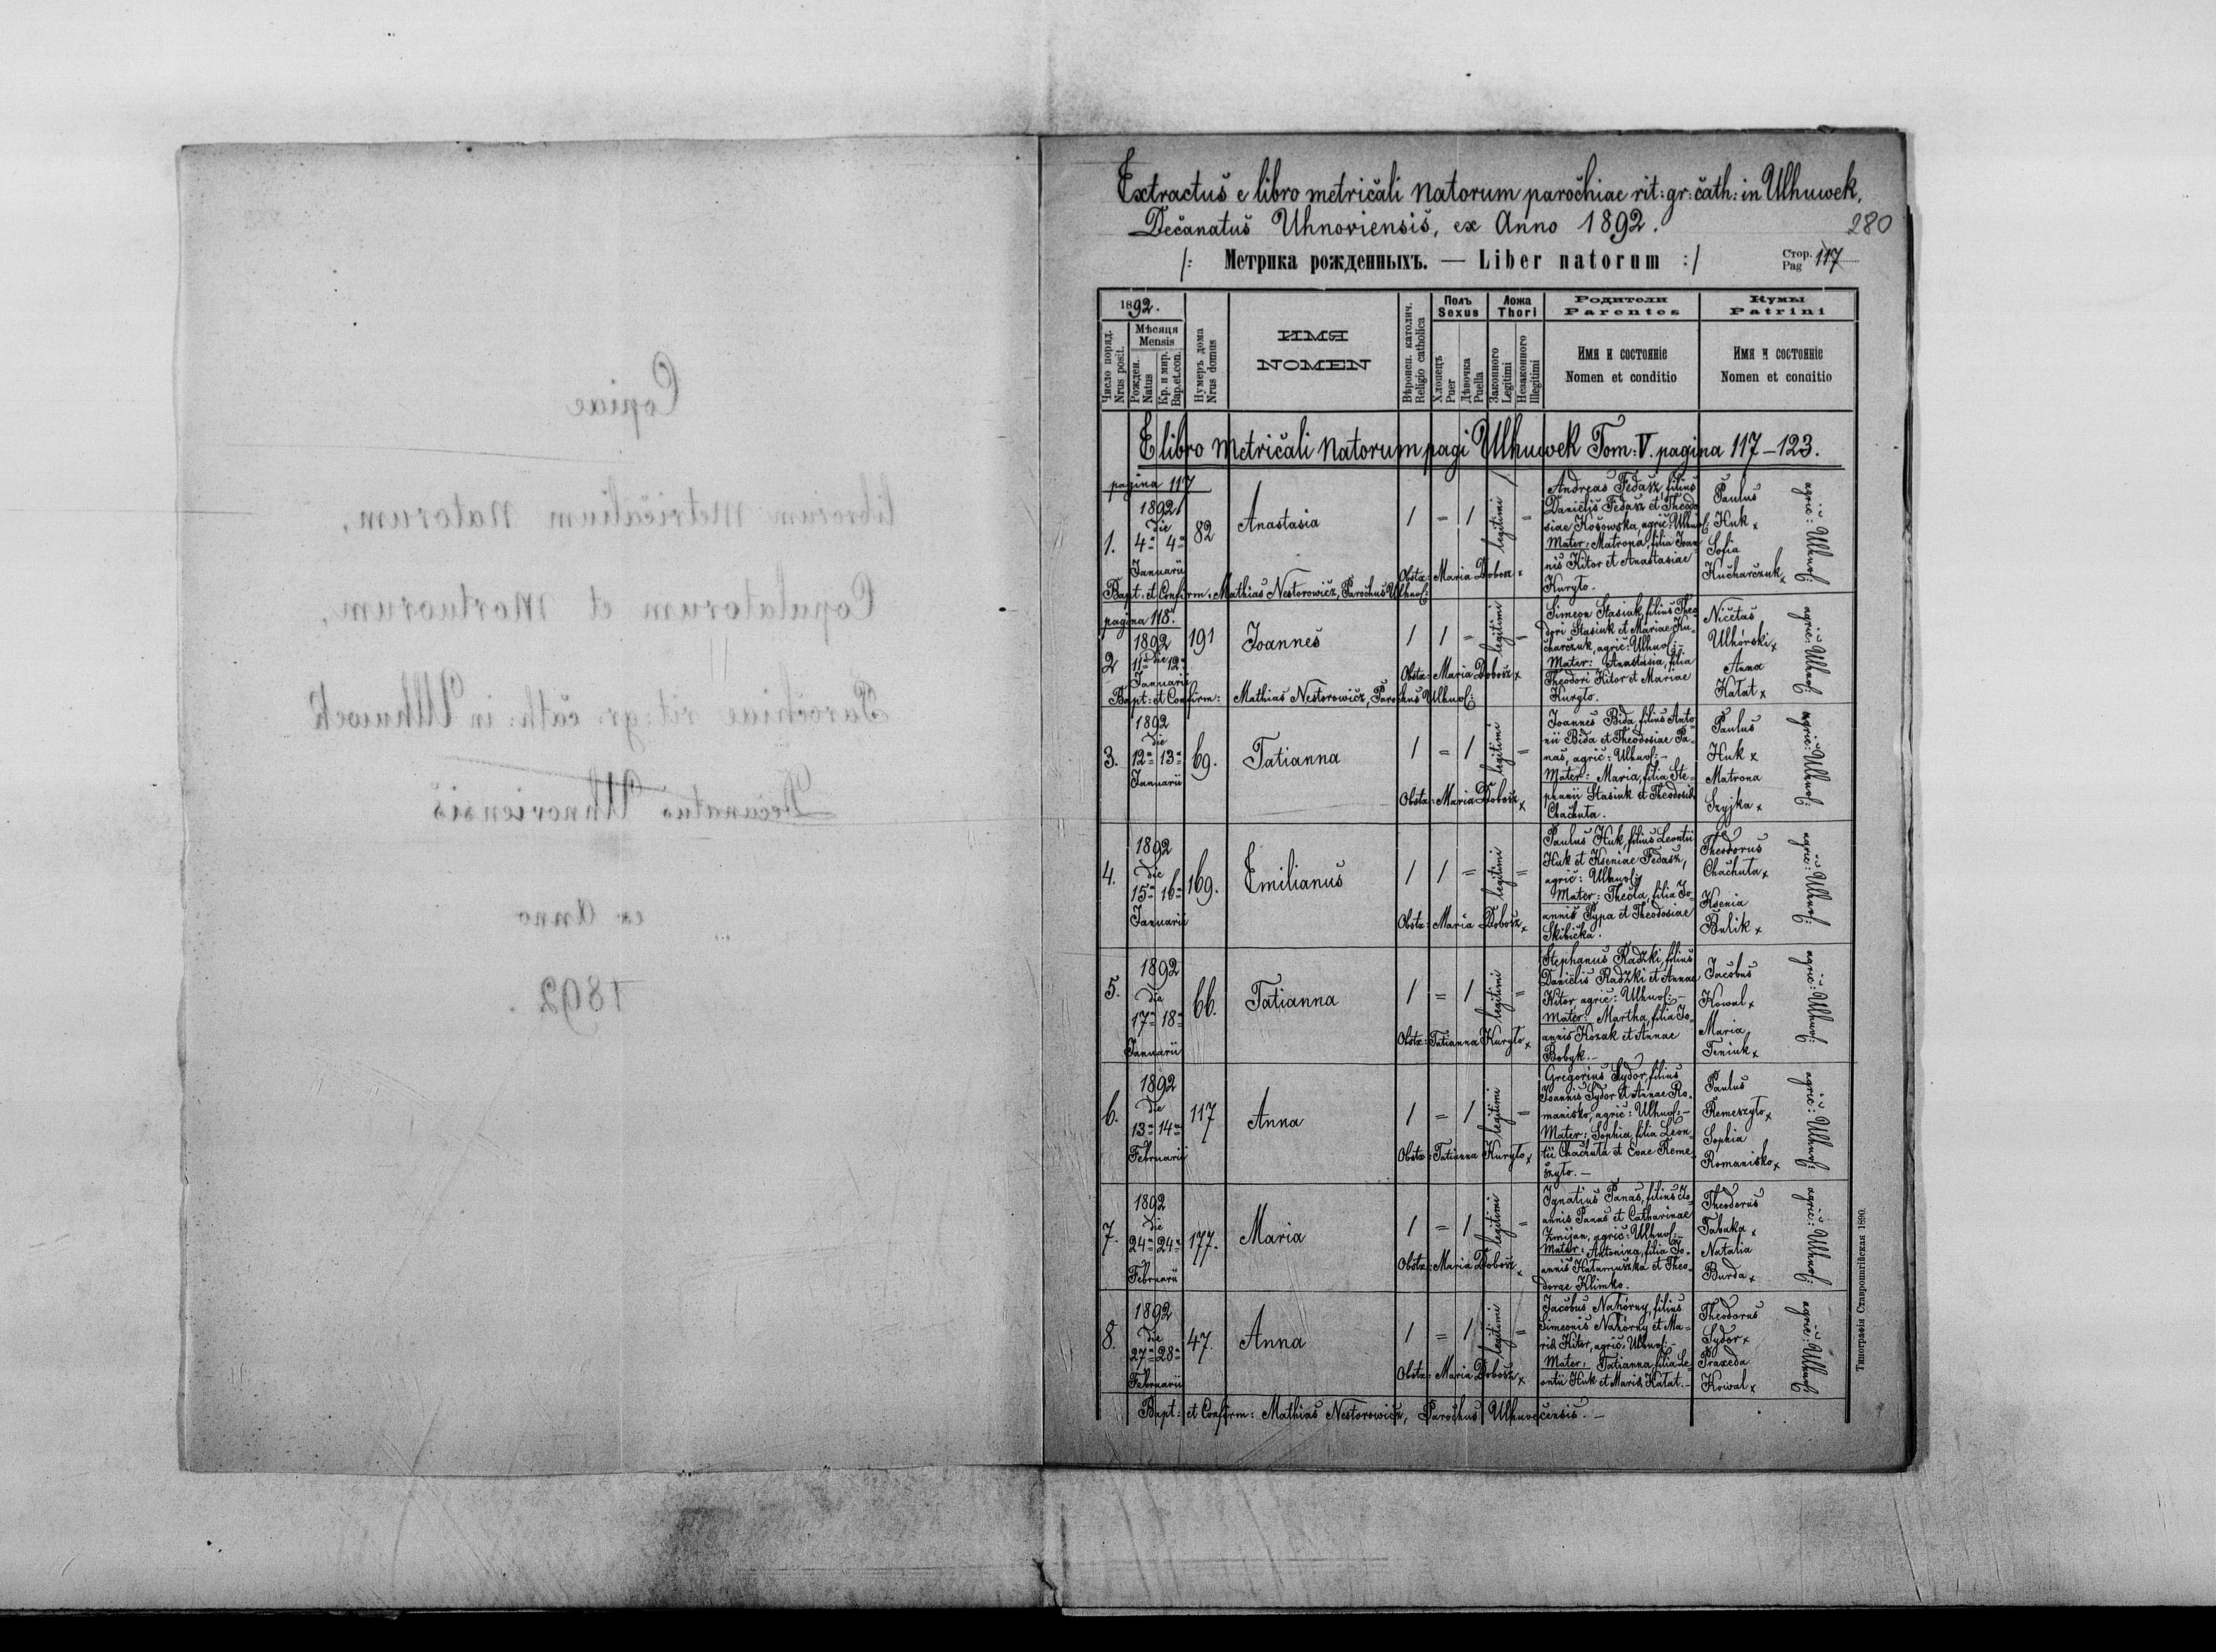 Copiae
librorum metricalium Natorum,
Copulatorum et Mortuorum,
Parochiae rit: gr: cath: in Ulhuwek
Decanatus Uhnoviensis
ex Anno
1892.
Extractus e libro metricali Natorum parochiae rit: gr: cath: in Ulhuwek,
Decanatus Uhnoviensis, ex Anno 1892.
280
/: Метрика рожденныхъ. — Liber natorum :/
Стор. Pag 117
1892.
Число поряд. Nrus posit.
Мѣсяця Mensis
Рожден. Natus
Кр. и мѵр. Bap.et.con.
Нумеръ дома Nrus domus
ИМЯ
NOMEN
Вѣроисп. католич. Religio catholica
Полъ Sexus
Хлопецъ Puer
Дѣвочка Puella
Ложа Thori
Законного Legitimi
Незаконного Illegitimi
Родители Parentes
Имя и состоянiе
Nomen et conditio
Кумы Patrini
Имя и состоянiе
Nomen et conditio
E libro metricali Natorum pagi Ulhuwek Tom: V. pagina 117–123.
pagina 117
1. 1892 die 4ª 4ª Januarii
82
Anastasia
1 = 1 legitimi =
Obstx: Maria Dobosz x
Andreas Fedasz, filius
Danielis Fedasz et Theodo
siae Kosowska, agric: Ulhuv:
Mater: Matrona, filia Joan
nis Kitor et Anastasiae
Kuryło.
Paulus
Huk x
Sofia
Kucharczuk x
agric: Ulhuv:
Bapt: et Confirm: Mathias Nestorowicz, Parochus Ulhuv:
pagina 118.
2 1892 die 11ª 12ª Januarii
191
Joannes
1 1 = legitimi =
Obstx: Maria Dobosz x
Simeon Stasiuk, filius Theo
dori Stasiuk et Mariae Ku
charczuk, agric: Ulhuv: –
Mater: Anastasia, filia
Theodori Kitor et Mariae
Kuryło.
Nicetas
Ulhórski x
Anna
Kałat x
agric: Ulhuv:
Bapt: et Confirm: Mathias Nestorowicz, Parochus Ulhuv:
3. 1892 die 12ª 13ª Januarii
69.
Tatianna
1 = 1 legitimi =
Obstx: Maria Dobosz x
Joannes Bida, filius Anto
nii Bida et Theodosiae Pa
nas, agric: Ulhuv: –
Mater: Maria, filia Ste
phanii Stasiuk et Theodosiae
Chachuta.
Paulus
Huk x
Matrona
Szyjka x
agric: Ulhuv:
4. 1892 die 15ª 16ª Januarii
169.
Emilianus
1 1 = legitimi =
Obstx: Maria Dobosz x
Paulus Huk, filius Leontii
Huk et Kseniae Fedasz,
agric: Ulhuv:
Mater: Theola, filia Jo
annis Pypa et Theodosiae
Skibicka.
Theodorus
Chachuta x
Ksenia
Bulik x
agric: Ulhuv:
5. 1892 die 17ª 18ª Januarii
66.
Tatianna
1 = 1 legitimi =
Obstx: Tatianna Kuryło x
Stephanus Radzki, filius
Danielis Radzki et Annae
Kitor agric: Ulhuv: –
Mater: Martha, filia Jo
annis Kozak et Annae
Bobyk. –
Jacobus
Kowal x
Maria
Teniuk x
agric: Ulhuv:
6. 1892 die 13ª 14ª Februarii
117
Anna
1 = 1 legitimi =
Obstx: Tatianna Kuryło x
Gregorius Sydor, filius
Joannis Sydor et Annae Ro
manisko, agric: Ulhuv: –
Mater: Sophia, filia Leon
tii Chachuta et Evae Reme
szyło. –
Paulus
Remeszyło x
Sophia
Romanisko x
agric: Ulhuv:
7. 1892 die 24ª 24ª Februarii
177.
Maria
1 = 1 legitimi =
Obstx: Maria Dobosz x
Ignatius Panas, filius Jo
annis Panas et Catharinae
Zmijan, agric: Ulhuv: –
Mater: Antonina, filia Jo
annis Hatamuszka et Theo
dorae Klimko.
Theodorus
Tabaka x
Natalia
Burda x
agric: Ulhuv:
8. 1892 die 27ª 28ª Februarii
47.
Anna
1 = 1 legitimi =
Obstx: Maria Dobosz x
Jacobus Nahórny, filius
Simeonis Nahórny et Ma
riae Kitor, agric: Ulhuv: –
Mater: Tatianna, filia Le
ontii Huk et Mariae Kałat. –
Theodorus
Sydor x
Praxeda
Kowal x
agric: Ulhuv:
Bapt: et Confirm: Mathias Nestorowicz, Parochus Ulhuvecensis. –
Типографiя Ставропигiйская 1890.